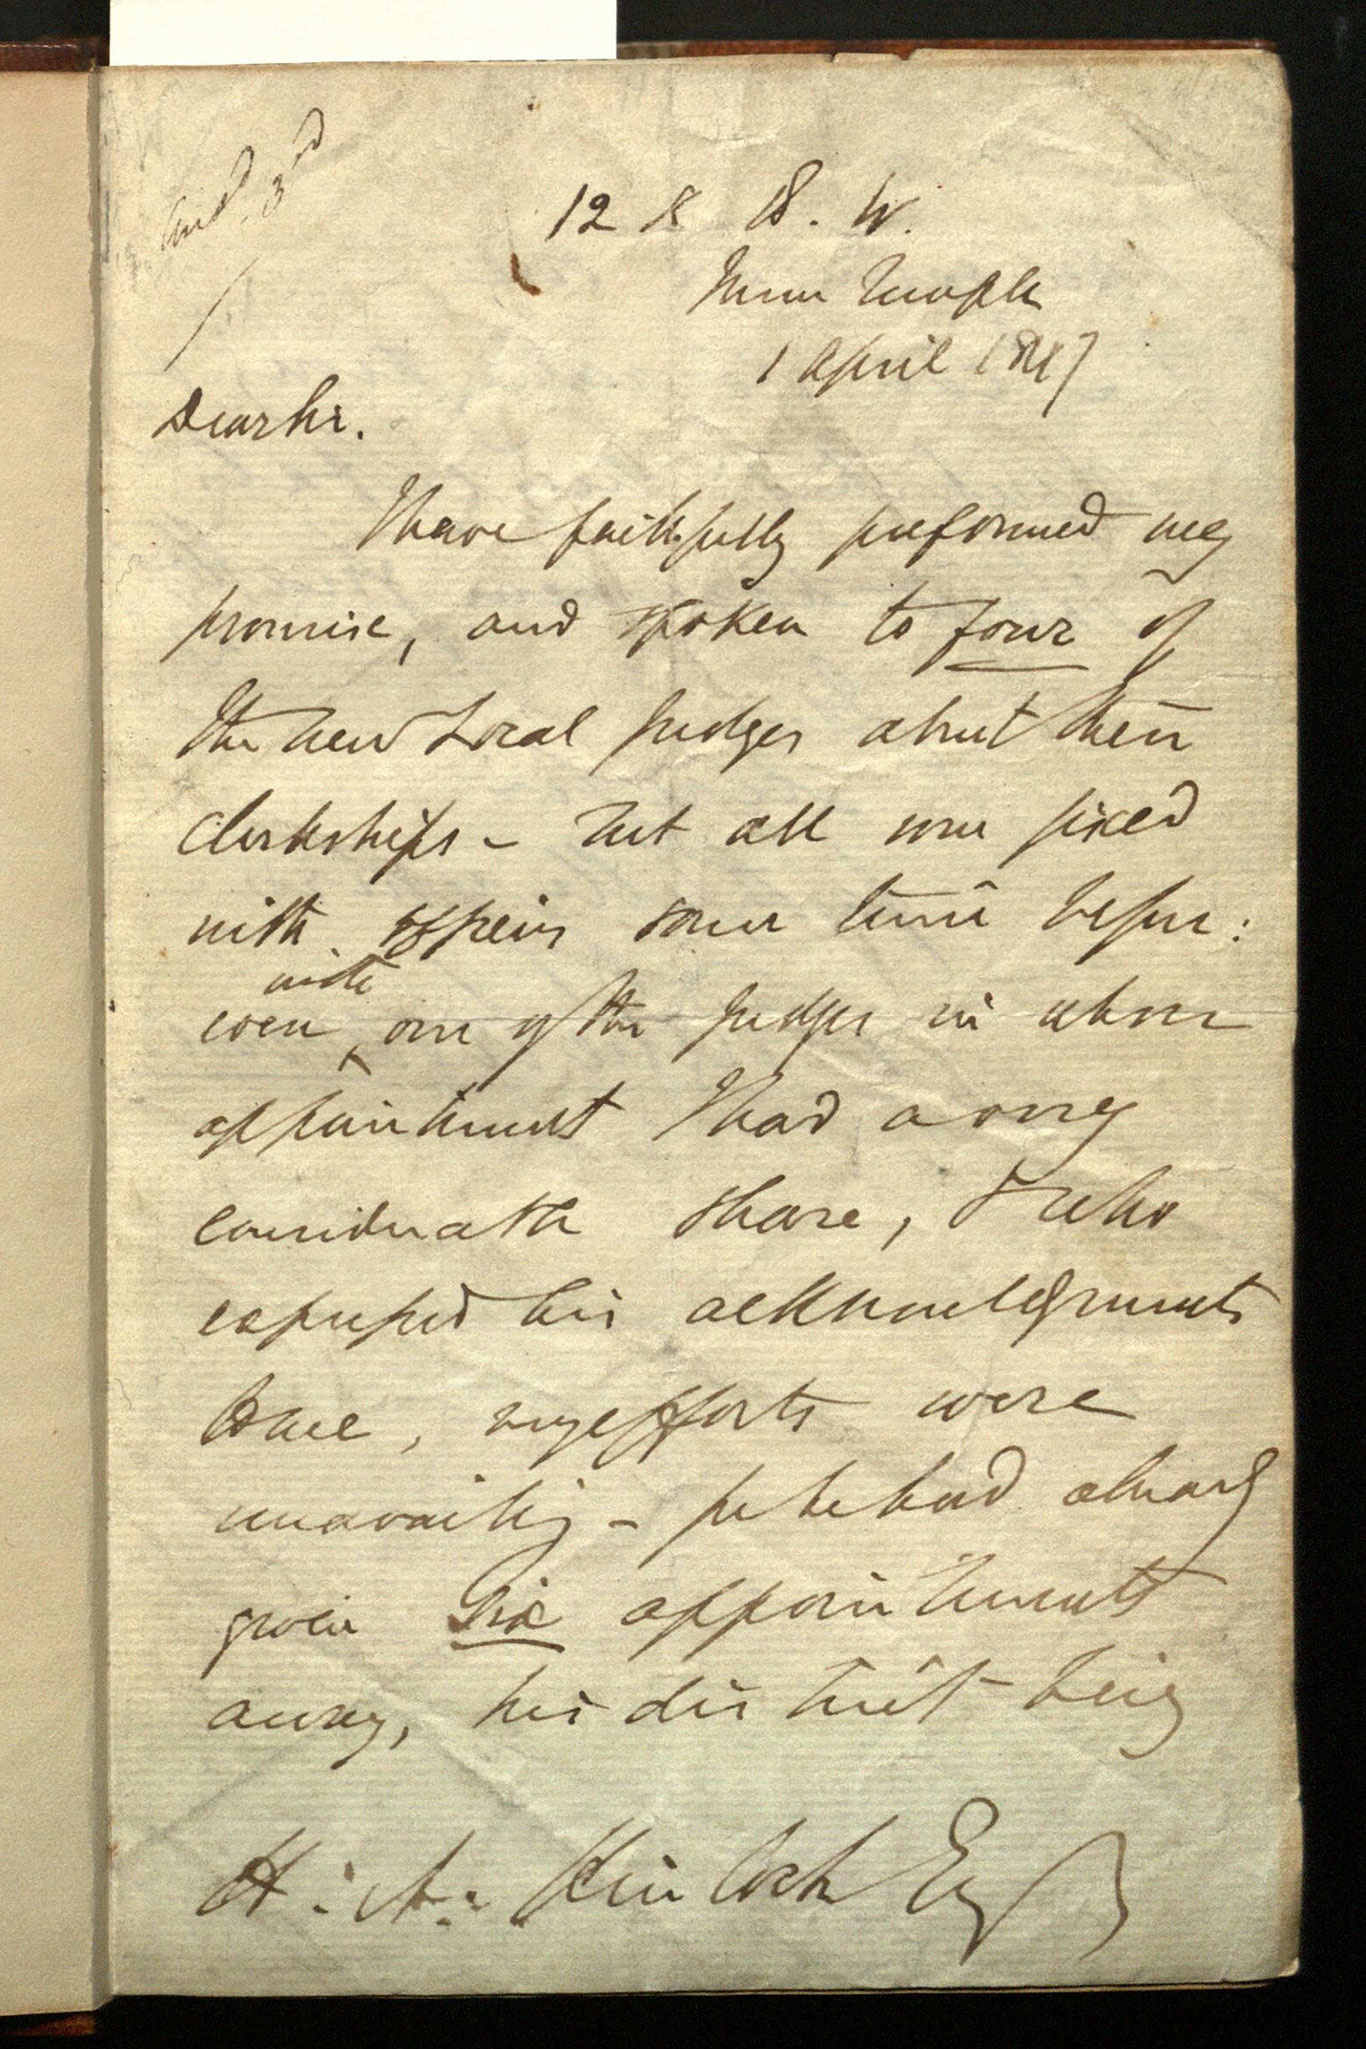 Ansd. 3rd
12 K B. W.
Inner Temple
1 April 1847
Dear Sir.
I have faithfully performed my
promise, and spoken to four of
the new Local Judges about their
Clerkships – but all were fixed
with officers some time before:
with
even one of the Judges in whose
appointment I had a very
considerable share, & who
expressed his acknowledgments
to me, my efforts were
unavailing – for he had already
given six appointments
away, his district being
H. A. Kinloch Esq